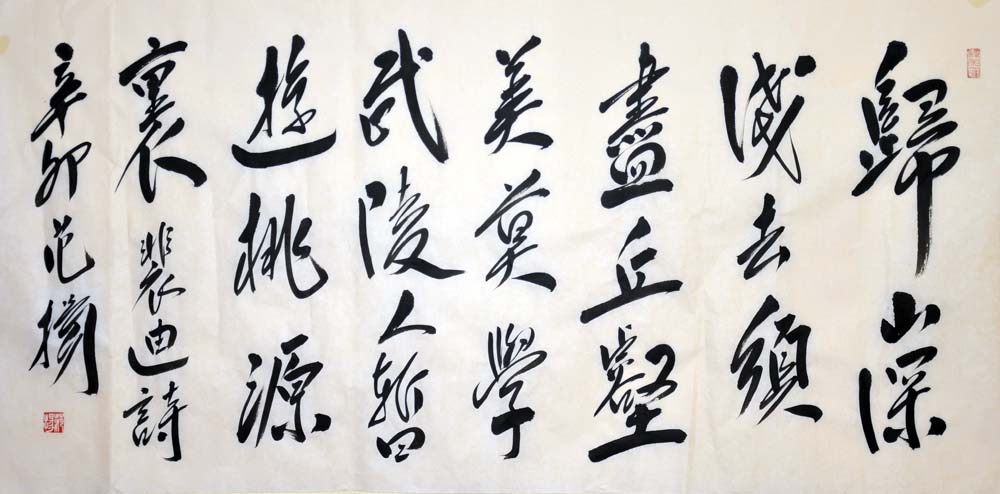 歸山深
淺去須
盡丘壑
美莫學
武陵人暫
遊桃源
裏 裴迪詩
辛卯范